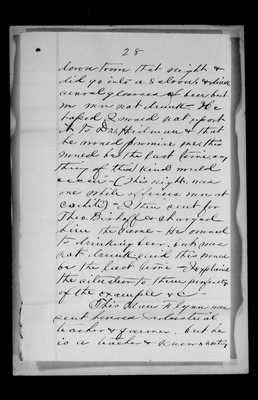 28
down town that night &
did go into a saloon & drink
several glasses of beer but
was not drunk — He
hoped I would not report
it to Dr. & that
he would promise me this
would be the last time any
thing of this kind would
occur — (This night was
one while officers were at
) — I then sent for
Theo. Bishoff & charged
him the same — He owned
to drinking beer, but was
not drunk said this would
be the last time — I explained
the situation to them properly
of the example & C —
This Man Flynn was
sent here as Industrial
teacher & farmer. but he
is a teacher & knows nothing